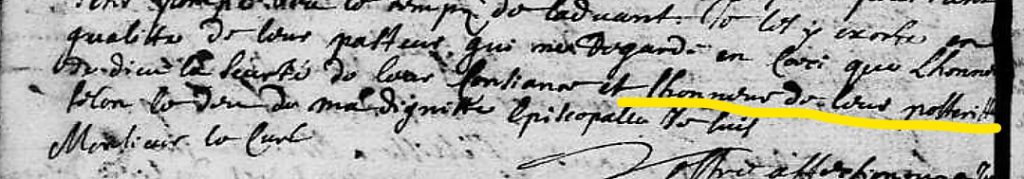 de laduant. Je les y exorte en
qualitte de leur pasteur, qui ne regarde en Ceci que Lhonne
de dieu la seurté de leur Consiance et lhonneur de leur posterité
selon le deu de ma dignitte Episcopalle Je suis
Monsieur le Curé
Vostre affectionne